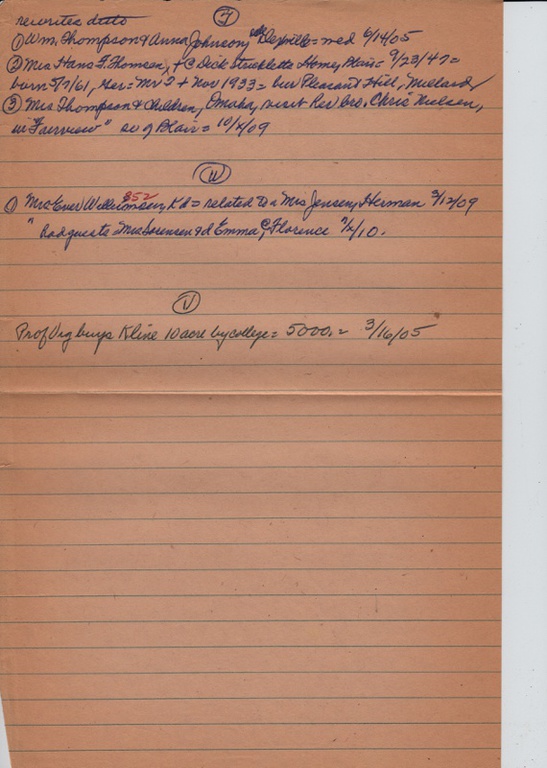 rewrites ditto T
① Wm. Thompson & Anna Johnson, = wed 6/14/05
② Mrs Hans F. Thomsen, + C Dick Home, Blair = 9/23/47 =
born 5/7/61, Ger = Mr T + Nov 1933 = bur Pleasant Hill, Millard
③ Mrs Thompson & children, Omaha, visit her bro. Chris Nielsen,
in "Fairview" sw of Blair = 10/ /09
W
① Mrs Ener Williamson, 352 Kd = related to a Mrs Jensen, Herman 3/12/09
" had guests = Mrs Sorensen & d Emma, Florence /10.
V
Prof Vig buys Kline 10 acre by college = 5000.= 3/16/05